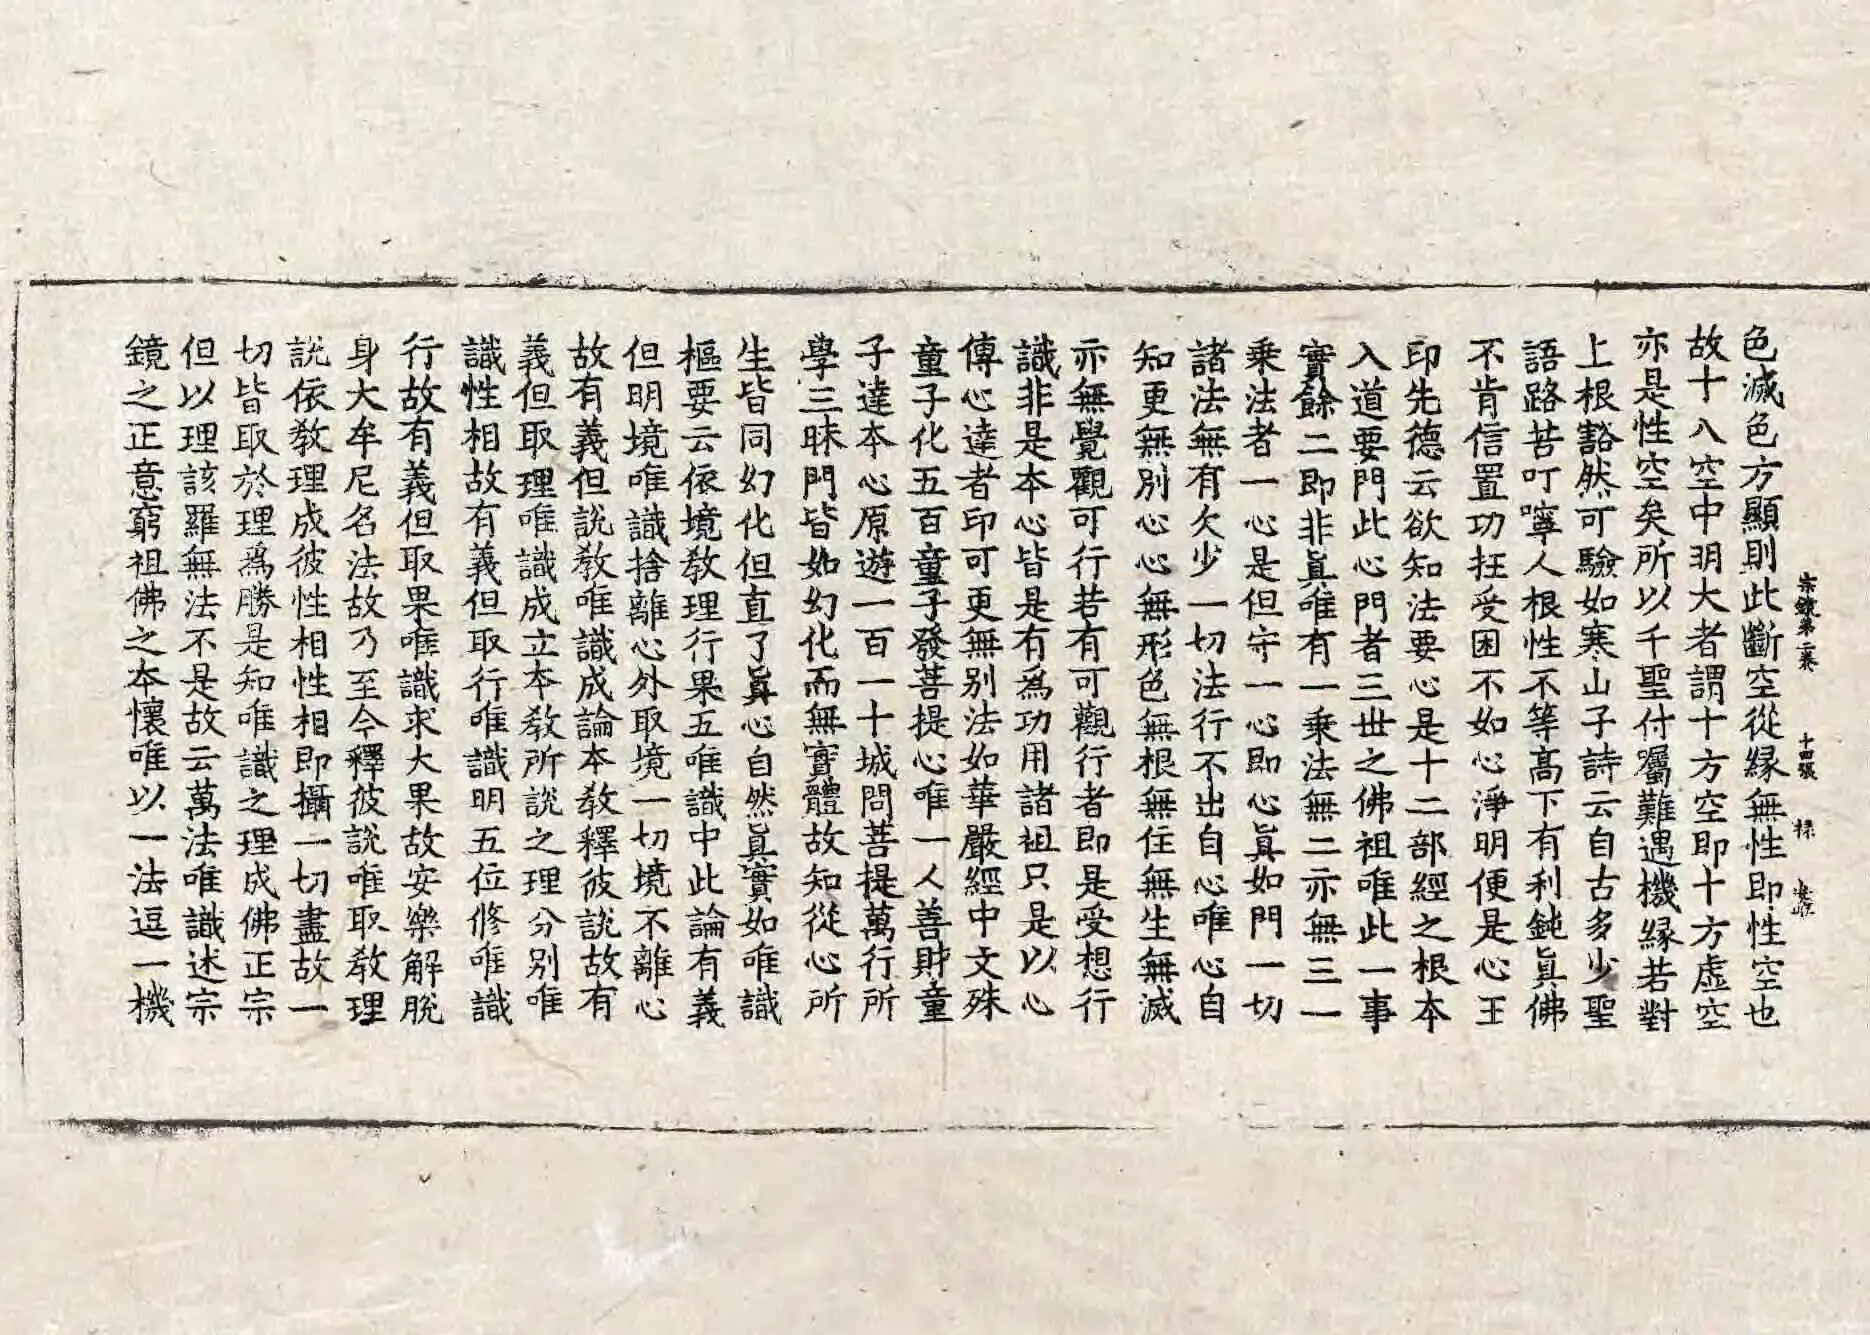 宗鏡第二卷 十四張 祿
色滅色方顯則此斷空從緣無性即性空也
故十八空中明大者謂十方空即十方虛空
亦是性空矣所以千聖付囑難遇機緣若對
上根豁然可驗如寒山子詩云自古多少聖
語路苦叮嚀人根性不等髙下有利鈍眞佛
不肯信置功抂受困不如心淨明便是心王
印先德云欲知法要心是十二部經之根本
入道要門此心門者三世之佛祖唯此一事
實餘二即非眞唯有一乗法無二亦無三一
乗法者一心是但守一心即心眞如門一切
諸法無有欠少一切法行不出自心唯心自
知更無別心心無形色無根無住無生無滅
亦無覺觀可行若有可觀行者即是受想行
識非是本心皆是有為功用諸祖只是以心
傳心達者印可更無別法如華嚴經中文殊
童子化五百童子發菩提心唯一人善財童
子達本心原遊一百一十城問菩提萬行所
學三昧門皆如幻化而無實體故知從心所
生皆同幻化但直了眞心自然眞實如唯識
樞要云依境教理行果五唯識中此論有義
但明境唯識捨離心外取境一切境不離心
故有義但說教唯識成論本教釋彼說故有
義但取理唯識成立本教所說之理分別唯
識性相故有義但取行唯識明五位修唯識
行故有義但取果唯識求大果故安樂解脫
身大牟尼名法故乃至今釋彼說唯取教理
說依教理成彼性相性相即攝一切盡故一
切皆取於理爲勝是知唯識之理成佛正宗
但以理該羅無法不是故云萬法唯識述宗
鏡之正意窮祖佛之本懷唯以一法逗一機